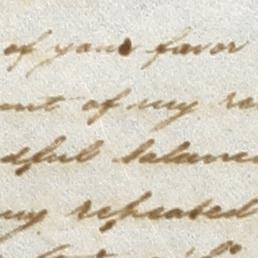 of your favor
ent of my
dful balance
my repeated